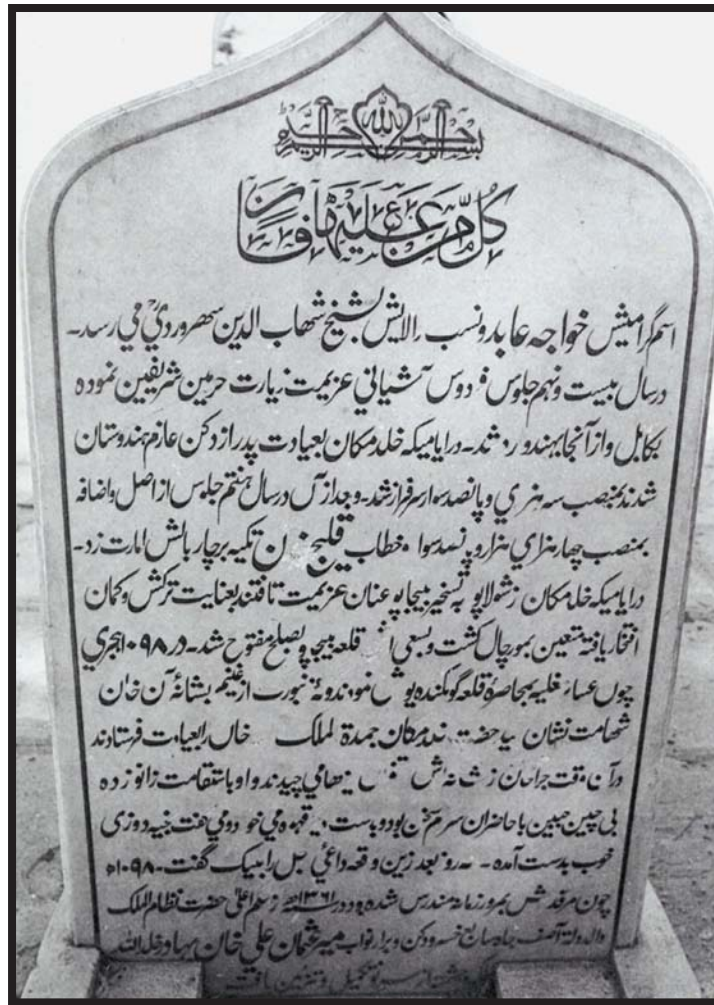 بسم الله الرحمن الرحيم
كل من عليها فان
اسم گرامیش خواجه عابد و نسب والایش بشیخ شهاب الدین سهروردي مي رسد۔
درسال بیست و نهم جلوس فردوس آشیاني عزیمت زیارت حرمین شریفین نموده
بکابل و از آنجا بهند و شد۔ درایامیکه خلد مکان بعیادت پدر از دکن عازم هندوستان
شدند بمنصب سه هزري و پانصد سوار سرفراز شد۔ و بعد از آں درسال هفتم جلوس از اصل و اضافه
بمنصب چهار هزاري هزار و پانصد سوار خطاب قلیج خان تکیه بر چار بالش امارت زد۔
درایامیکه خلد مکان ز شولاپور به تسخیر بیجاپور عنان عزیمت تافتند بعنایت ترکش و کمان
افتخار یافته متعین بمورچال گشت و بسعی قلعه بیجاپور بصلح مفتوح شد۔ در ۱۰۹۸ هجري
چوں عساکر بمحاصرهٔ قلعه گولکنده یورش نمودند از غنیم بشانهٔ آن خان
شهامت نشان حضرت مکان جمدة الملک خاں را بعیادت فرستادند
درآن وقت جراحان ز شانه اش مي چیدند و او باستقامت زانو زده
بی چین جبین با حاضران سرگرم سخن بود و بدست قهوه مي خورد و مي گفت بنیه دوزی
خوب بدست آمده۔ سه روز بعد زین وقعه داعئ اجل را لبیک گفت۔ ۱۰۹۸ه
چون مرقدش بمرور زمانه مندرس شده بود در ۱۳۶۱ه ز حکم اعلیٰ حضرت نظام الملک
آصف جاه سابع خسرو دکن و برار نواب میر عثمان علي خان بهادر خلد الله
از سر نو تکمیل و تزئین یافت